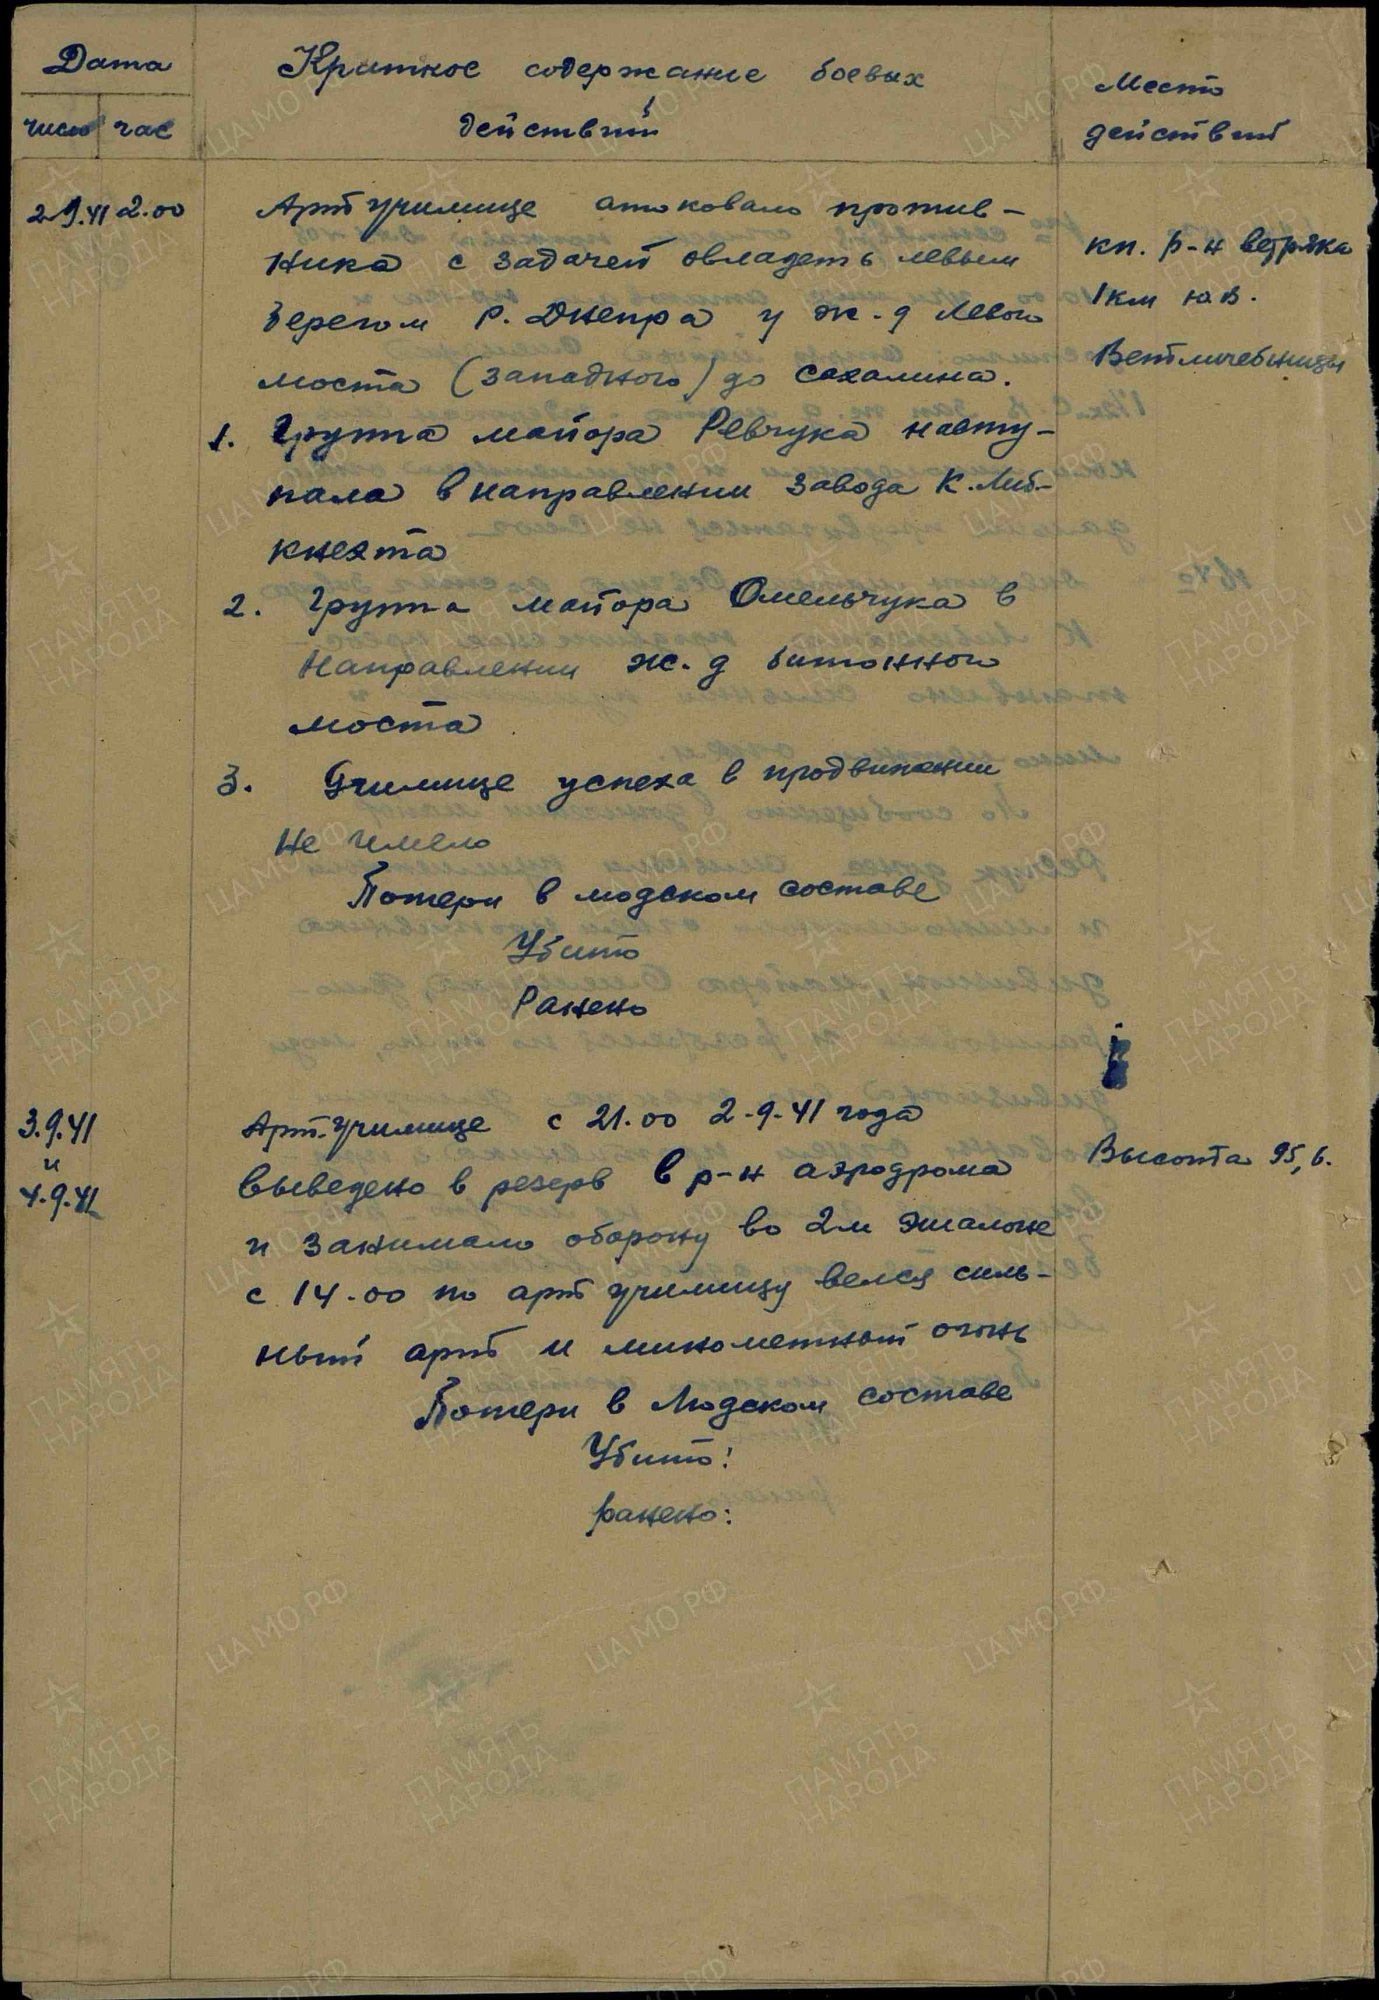 Дата
число час
Краткое содержание боевых
действий
Место
действий
2.9.41 2.00
Арт училище атоковало против-
ника с задачей овладеть левым
берегом р. Днепра у ж.д левого
моста (западного) до сахалина.
кп. р-н ветряка
1 км ю.в.
Ветличебницы
1. Группа майора Ревчука насту-
пала в направлении завода К. Либ-
кнехта
2. Группа майора Омельчука в
направлении ж.д битонного
моста
3. Училище успеха в продвижении
не имело
Потери в людском составе
Убито
Ранено
3.9.41
и
4.9.41
Арт.училище с 21.00 2-9-41 года
выведено в резерв в р-н аэродрома
и занимало оборону во 2м эшалоне
с 14.00 по арт училищу велся силь-
ный арт и минометный огонь
Потери в Людском составе
Убито:
ранено:
Высота 95,6.
ЦАМО РФ
ПАМЯТЬ
НАРОДА